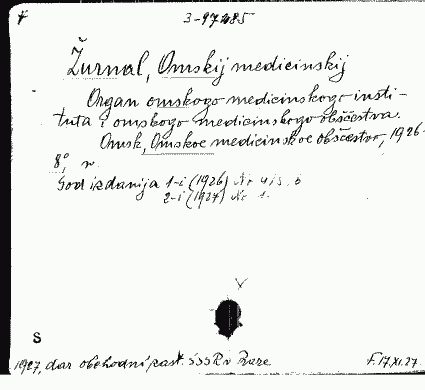 3-97485
Žurnal, Omskij medicinskij
Organ omskogo medicinskogo insti-
tuta i omskogo medicinskogo obščestva.
Omsk, Omskoe medicinskoe obščestvo, 1926-
8°, r.
God izdanija 1-i (1926) Nr 4/5, 6
2-i (1927) Nr 1.
S
1927, dar obchodní zast. SSSR v Praze
F.17.XI.27